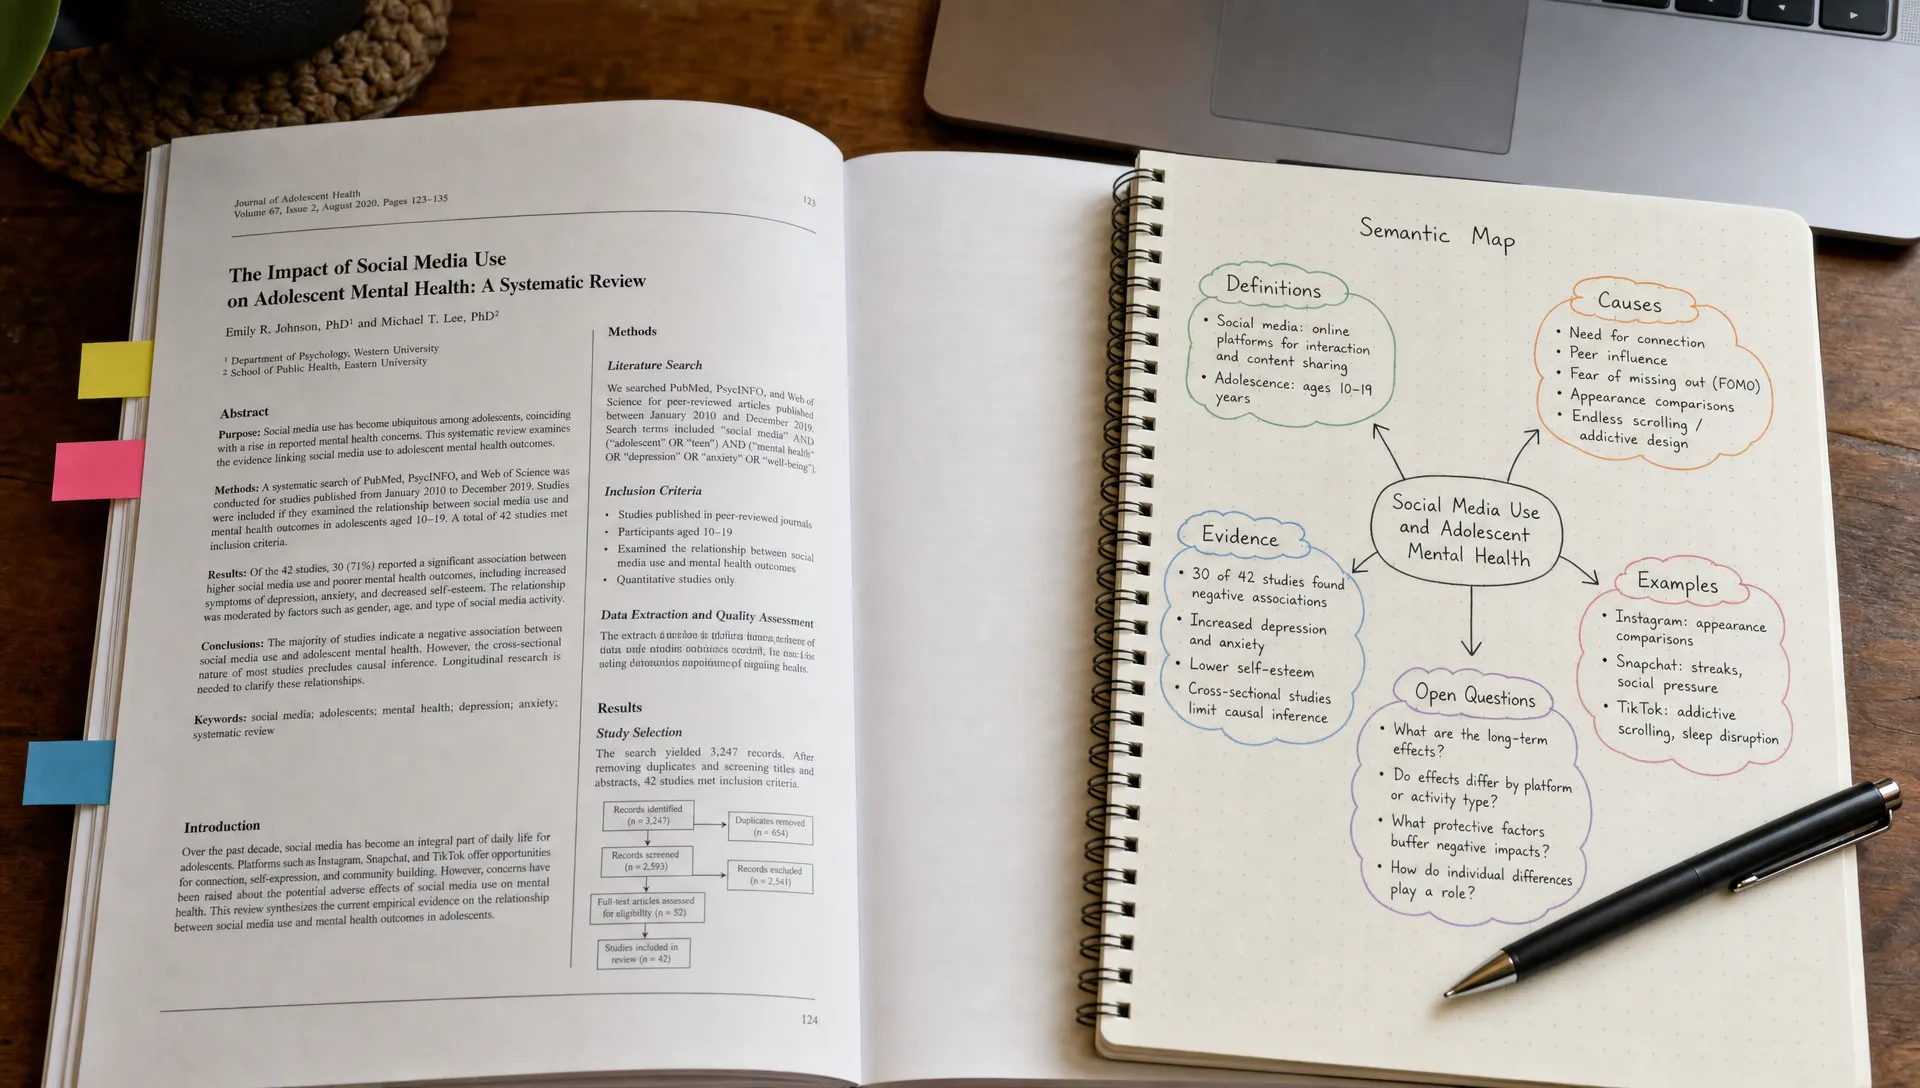 Journal of Adolescent Health
Volume 67, Issue 2, August 2020, Pages 123–135
123
The Impact of Social Media Use
on Adolescent Mental Health: A Systematic Review
Emily R. Johnson, PhD¹ and Michael T. Lee, PhD²
¹ Department of Psychology, Western University
² School of Public Health, Eastern University
Abstract
Purpose: Social media use has become ubiquitous among adolescents, coinciding
with a rise in reported mental health concerns. This systematic review examines
the evidence linking social media use to adolescent mental health outcomes.
Methods: A systematic search of PubMed, PsycINFO, and Web of Science was
conducted for studies published from January 2010 to December 2019. Studies
were included if they examined the relationship between social media use and
mental health outcomes in adolescents aged 10–19. A total of 42 studies met
inclusion criteria.
Results: Of the 42 studies, 30 (71%) reported a significant association between
higher social media use and poorer mental health outcomes, including increased
symptoms of depression, anxiety, and decreased self-esteem. The relationship
was moderated by factors such as gender, age, and type of social media activity.
Conclusions: The majority of studies indicate a negative association between
social media use and adolescent mental health. However, the cross-sectional
nature of most studies precludes causal inference. Longitudinal research is
needed to clarify these relationships.
Keywords: social media; adolescents; mental health; depression; anxiety;
systematic review
Introduction
Over the past decade, social media has become an integral part of daily life for
adolescents. Platforms such as Instagram, Snapchat, and TikTok offer opportunities
for connection, self-expression, and community building. However, concerns have
been raised about the potential adverse effects of social media use on mental
health. This review synthesizes the current empirical evidence on the relationship
between social media use and mental health outcomes in adolescents.
Methods
Literature Search
We searched PubMed, PsycINFO, and Web of
Science for peer-reviewed articles published
between January 2010 and December 2019.
Search terms included "social media" AND
("adolescent" OR "teen") AND ("mental health"
OR "depression" OR "anxiety" OR "well-being").
Inclusion Criteria
• Studies published in peer-reviewed journals
• Participants aged 10–19
• Examined the relationship between social
media use and mental health outcomes
• Quantitative studies only
Data Extraction and Quality Assessment
The
data
Results
Study Selection
The search yielded 3,247 records. After
removing duplicates and screening titles and
abstracts, 42 studies met inclusion criteria.
Records identified
(n = 3,247)
Duplicates removed
(n = 654)
Records screened
(n = 2,593)
Records excluded
(n = 2,541)
Full-text articles assessed
for eligibility (n = 52)
Studies included in
review (n = 42)
124
Semantic Map
Definitions
• Social media: online
platforms for interaction
and content sharing
• Adolescence: ages 10–19
years
Causes
• Need for connection
• Peer influence
• Fear of missing out (FOMO)
• Appearance comparisons
• Endless scrolling /
addictive design
Social Media Use
and Adolescent
Mental Health
Evidence
• 30 of 42 studies found
negative associations
• Increased depression
and anxiety
• Lower self-esteem
• Cross-sectional studies
limit causal inference
Examples
• Instagram: appearance
comparisons
• Snapchat: streaks,
social pressure
• TikTok: addictive
scrolling, sleep disruption
Open Questions
• What are the long-term
effects?
• Do effects differ by platform
or activity type?
• What protective factors
buffer negative impacts?
• How do individual differences
play a role?